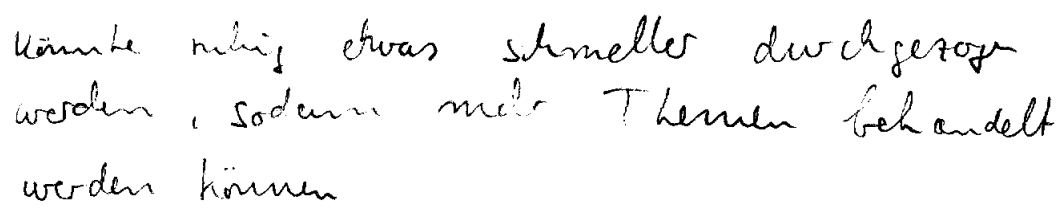 könnte ruhig etwas schneller durchgezogen
werden, sodann mehr Themen behandelt
werden können